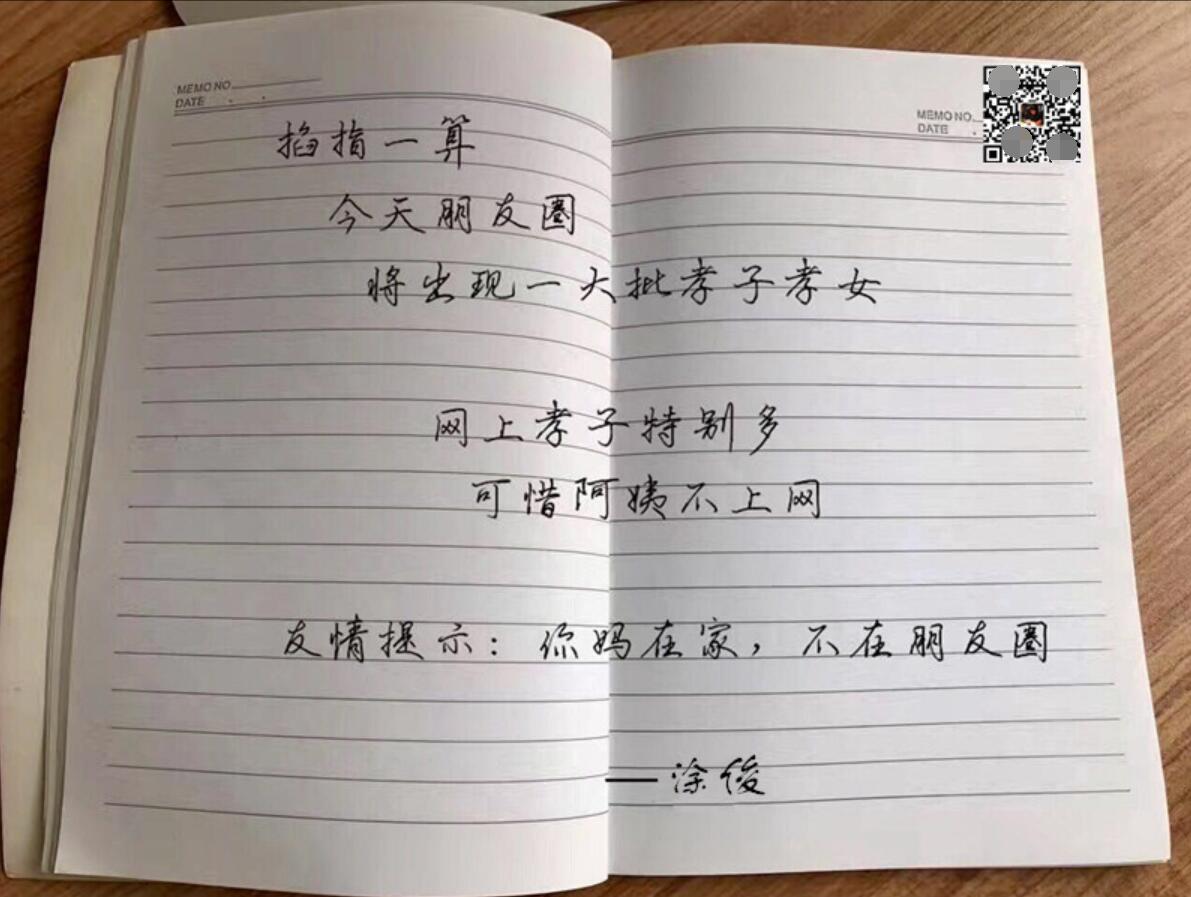 MEMO NO
DATE
MEMO NO.
DATE
掐指一算
今天朋友圈
将出现一大批孝子孝女
网上孝子特别多
可惜阿姨不上网
友情提示：你妈在家，不在朋友圈
——涂俊